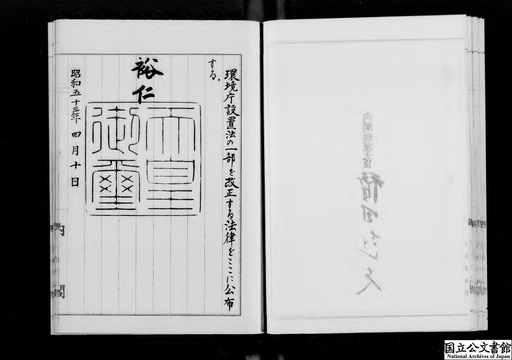 環境庁設置法の一部を改正する法律をここに公布
する。
裕仁
天皇
御璽
昭和五十三年四月十日
内閣
国立公文書館
National Archives of Japan